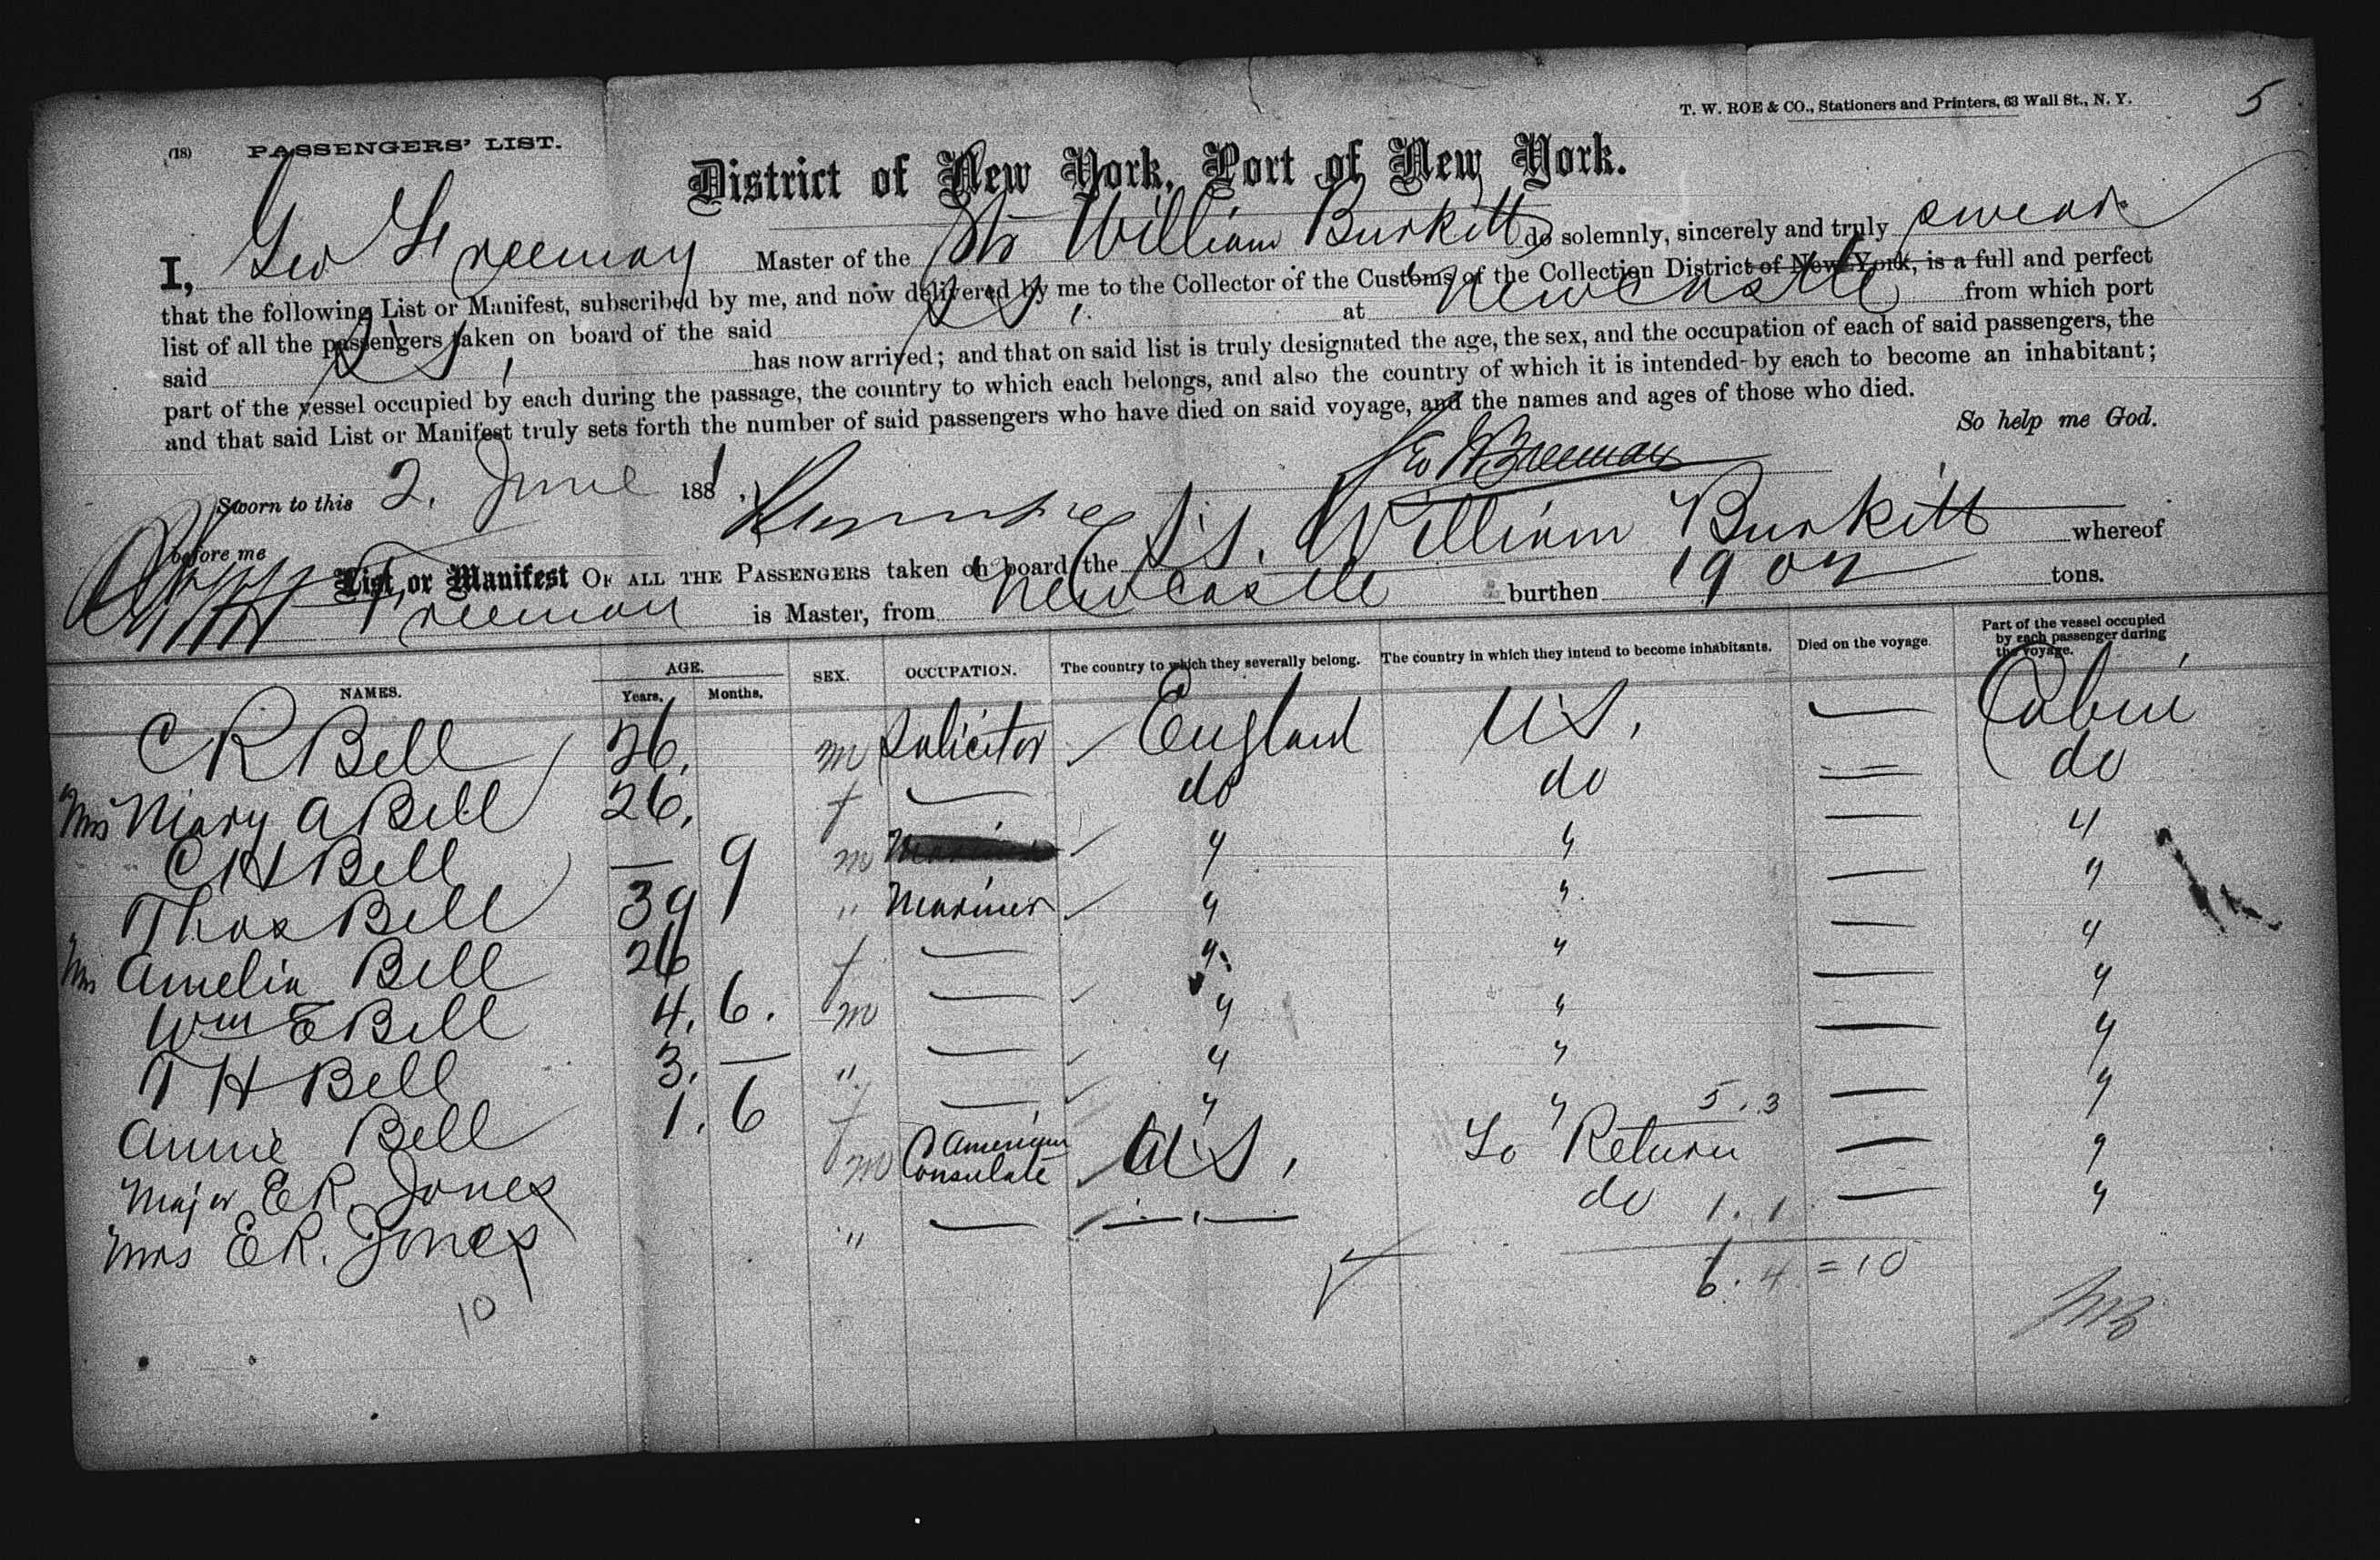 5
T. W. ROE & CO., Stationers and Printers, 63 Wall St., N. Y.
(18) PASSENGERS' LIST.
District of New York, Port of New York.
I, Geo Freeman Master of the Str William Burkitt do solemnly, sincerely and truly swear
that the following List or Manifest, subscribed by me, and now delivered by me to the Collector of the Customs of the Collection District of New York, is a full and perfect
list of all the passengers taken on board of the said S.S. at Newcastle from which port
said S.S. has now arrived; and that on said list is truly designated the age, the sex, and the occupation of each of said passengers, the
part of the vessel occupied by each during the passage, the country to which each belongs, and also the country of which it is intended by each to become an inhabitant;
and that said List or Manifest truly sets forth the number of said passengers who have died on said voyage, and the names and ages of those who died.
So help me God.
Geo Freeman
Sworn to this 2. June 1881,
before me
List or Manifest OF ALL THE PASSENGERS taken on board the S.S. William Burkitt whereof
Freeman is Master, from Newcastle burthen 1904 tons.
NAMES. AGE. Years. Months. SEX. OCCUPATION. The country to which they severally belong. The country in which they intend to become inhabitants. Died on the voyage. Part of the vessel occupied by each passenger during the voyage.
C R Bell 26. m Solicitor England U S. — Cabin
Mrs Mary A Bell 26. f — do do — do
C H Bell — 9 m " " — "
Thos Bell 39 " Mariner " " — "
Mrs Amelia Bell 26 f — " " — "
Wm E Bell 4. 6. m — " " — "
T H Bell 3. — " — " " — "
Annie Bell 1. 6 f — " " 5.3 — "
Major E R. Jones m American Consulate U S. To Return — "
Mrs E R. Jones " — — " — do 1.1 — "
10
6.4 = 10